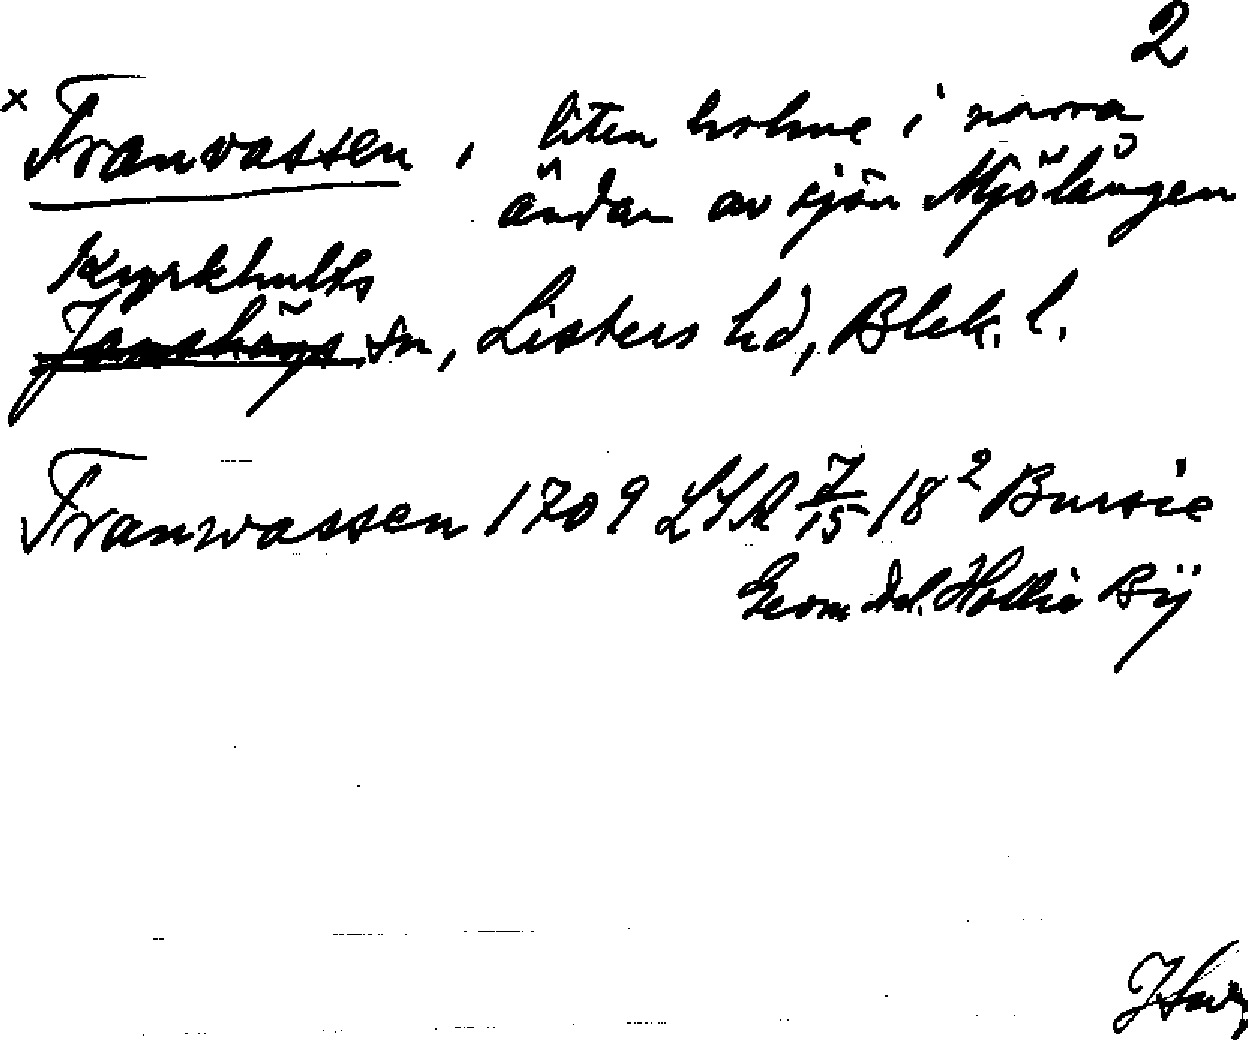 2
x Tranvassen, liten holme i norra
ändan av sjön Mjölången
Kyrkhults
Jämshögs sn, Listers hd, Blek. l.
Tranwassen 1709 LSA 7/15 18² Bursie
Geom. del. Hollie Bÿ